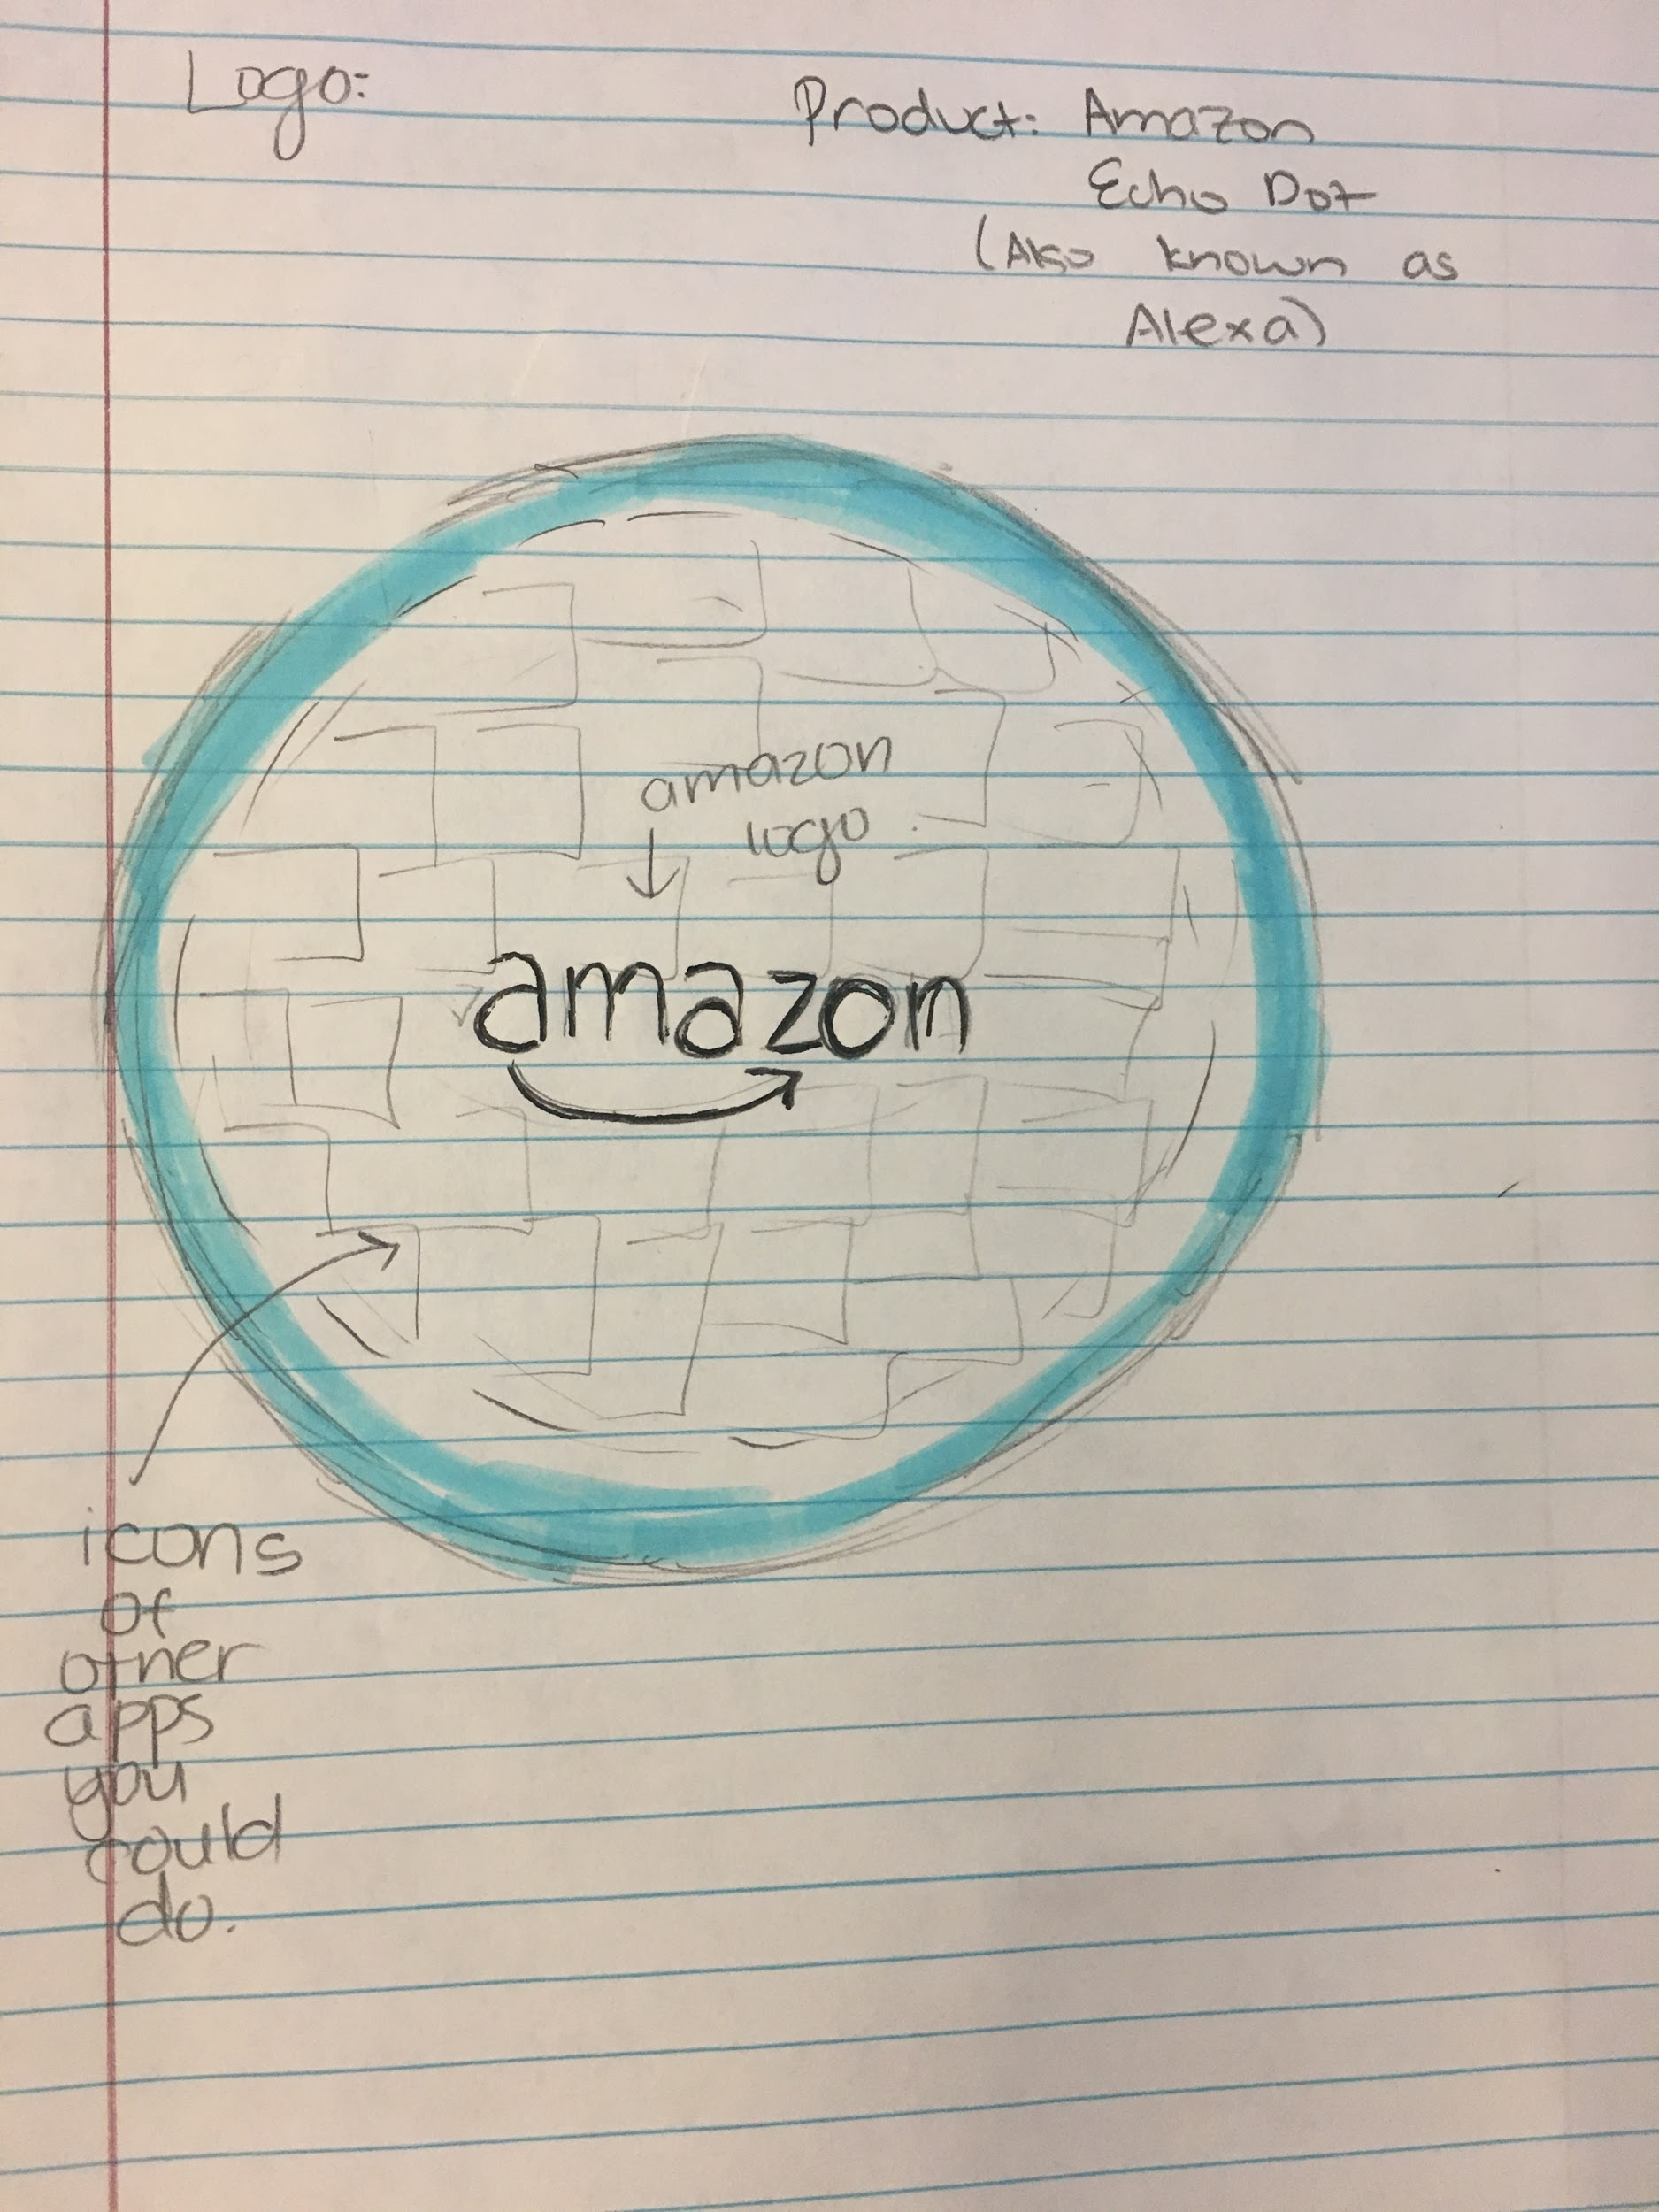 Logo:
Product: Amazon
Echo Dot
(Also known as
Alexa)
amazon
logo
amazon
icons
of
other
apps
you
could
do.